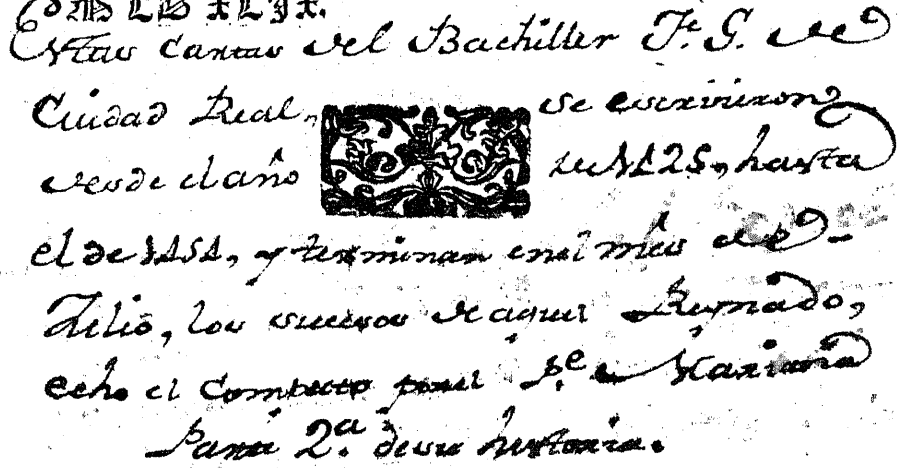 Estas Cartas del Bachiller F. G. de
Ciudad Real, se escrivieron
desde el año de 1425, hasta
el de 1454, y terminan en el mes de
Julio, los sucesos de aquel Reynado,
echo el Computo por el Pe. Mariana
Parte 2.ª de su historia.